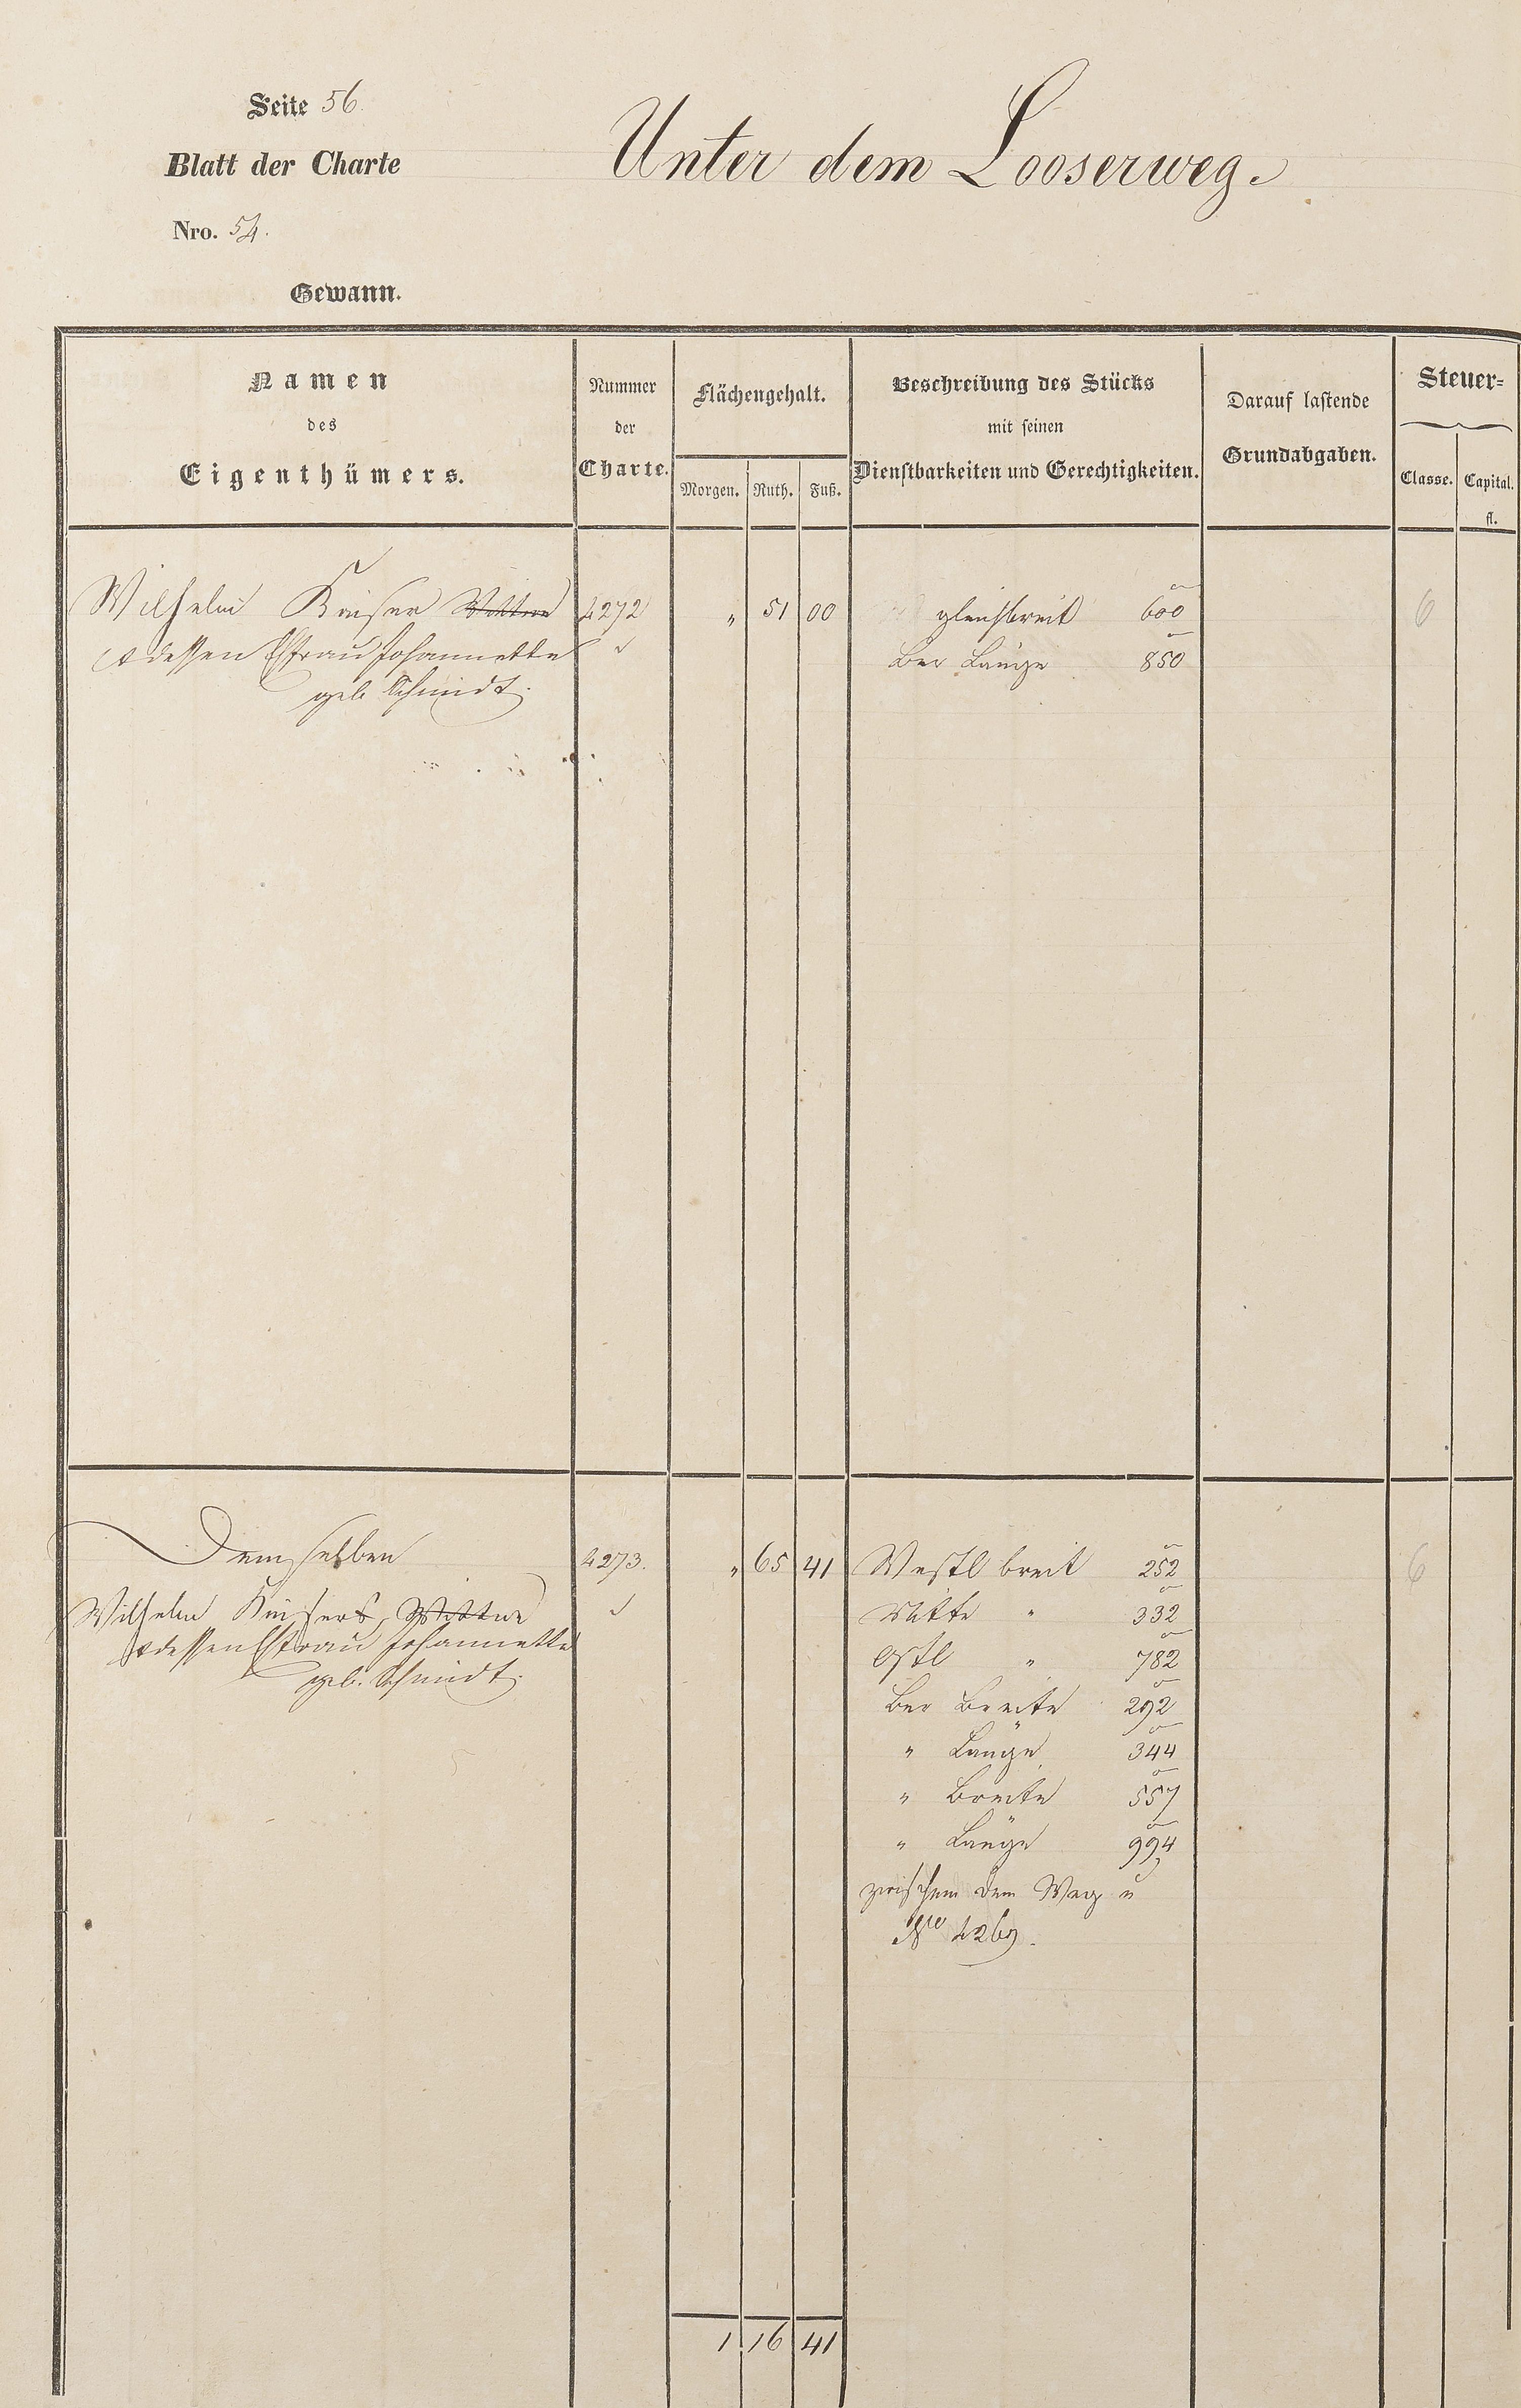 Seite 56.
Blatt der Charte
Unter dem Looserweg.
Nro. 54.
Gewann.
Namen
des
Eigenthümers.
Nummer
der
Charte.
Flächengehalt.
Morgen. Ruth. Fuß.
Beschreibung des Stücks
mit seinen
Dienstbarkeiten und Gerechtigkeiten.
Darauf lastende
Grundabgaben.
Steuer=
Classe. Capital.
fl.
Wilhelm Kaiser Wittwe 4272 " 51 00 gleichbreit 600 6
& dessen Ehfrau Johannette Ber Länge 850
geb Schmidt.
Demselben 4273. " 65 41 Westl breit 252 6
Wilhelm Kaisers, Wittwe Mitte " 332
& dessen Ehfrau Johannette Ostl " 782
geb. Schmidt. Ber Breite 292
" Länge 344
" Breite 557
" Länge 994
zwischen dem Weg u
No 4269.
1 16 41